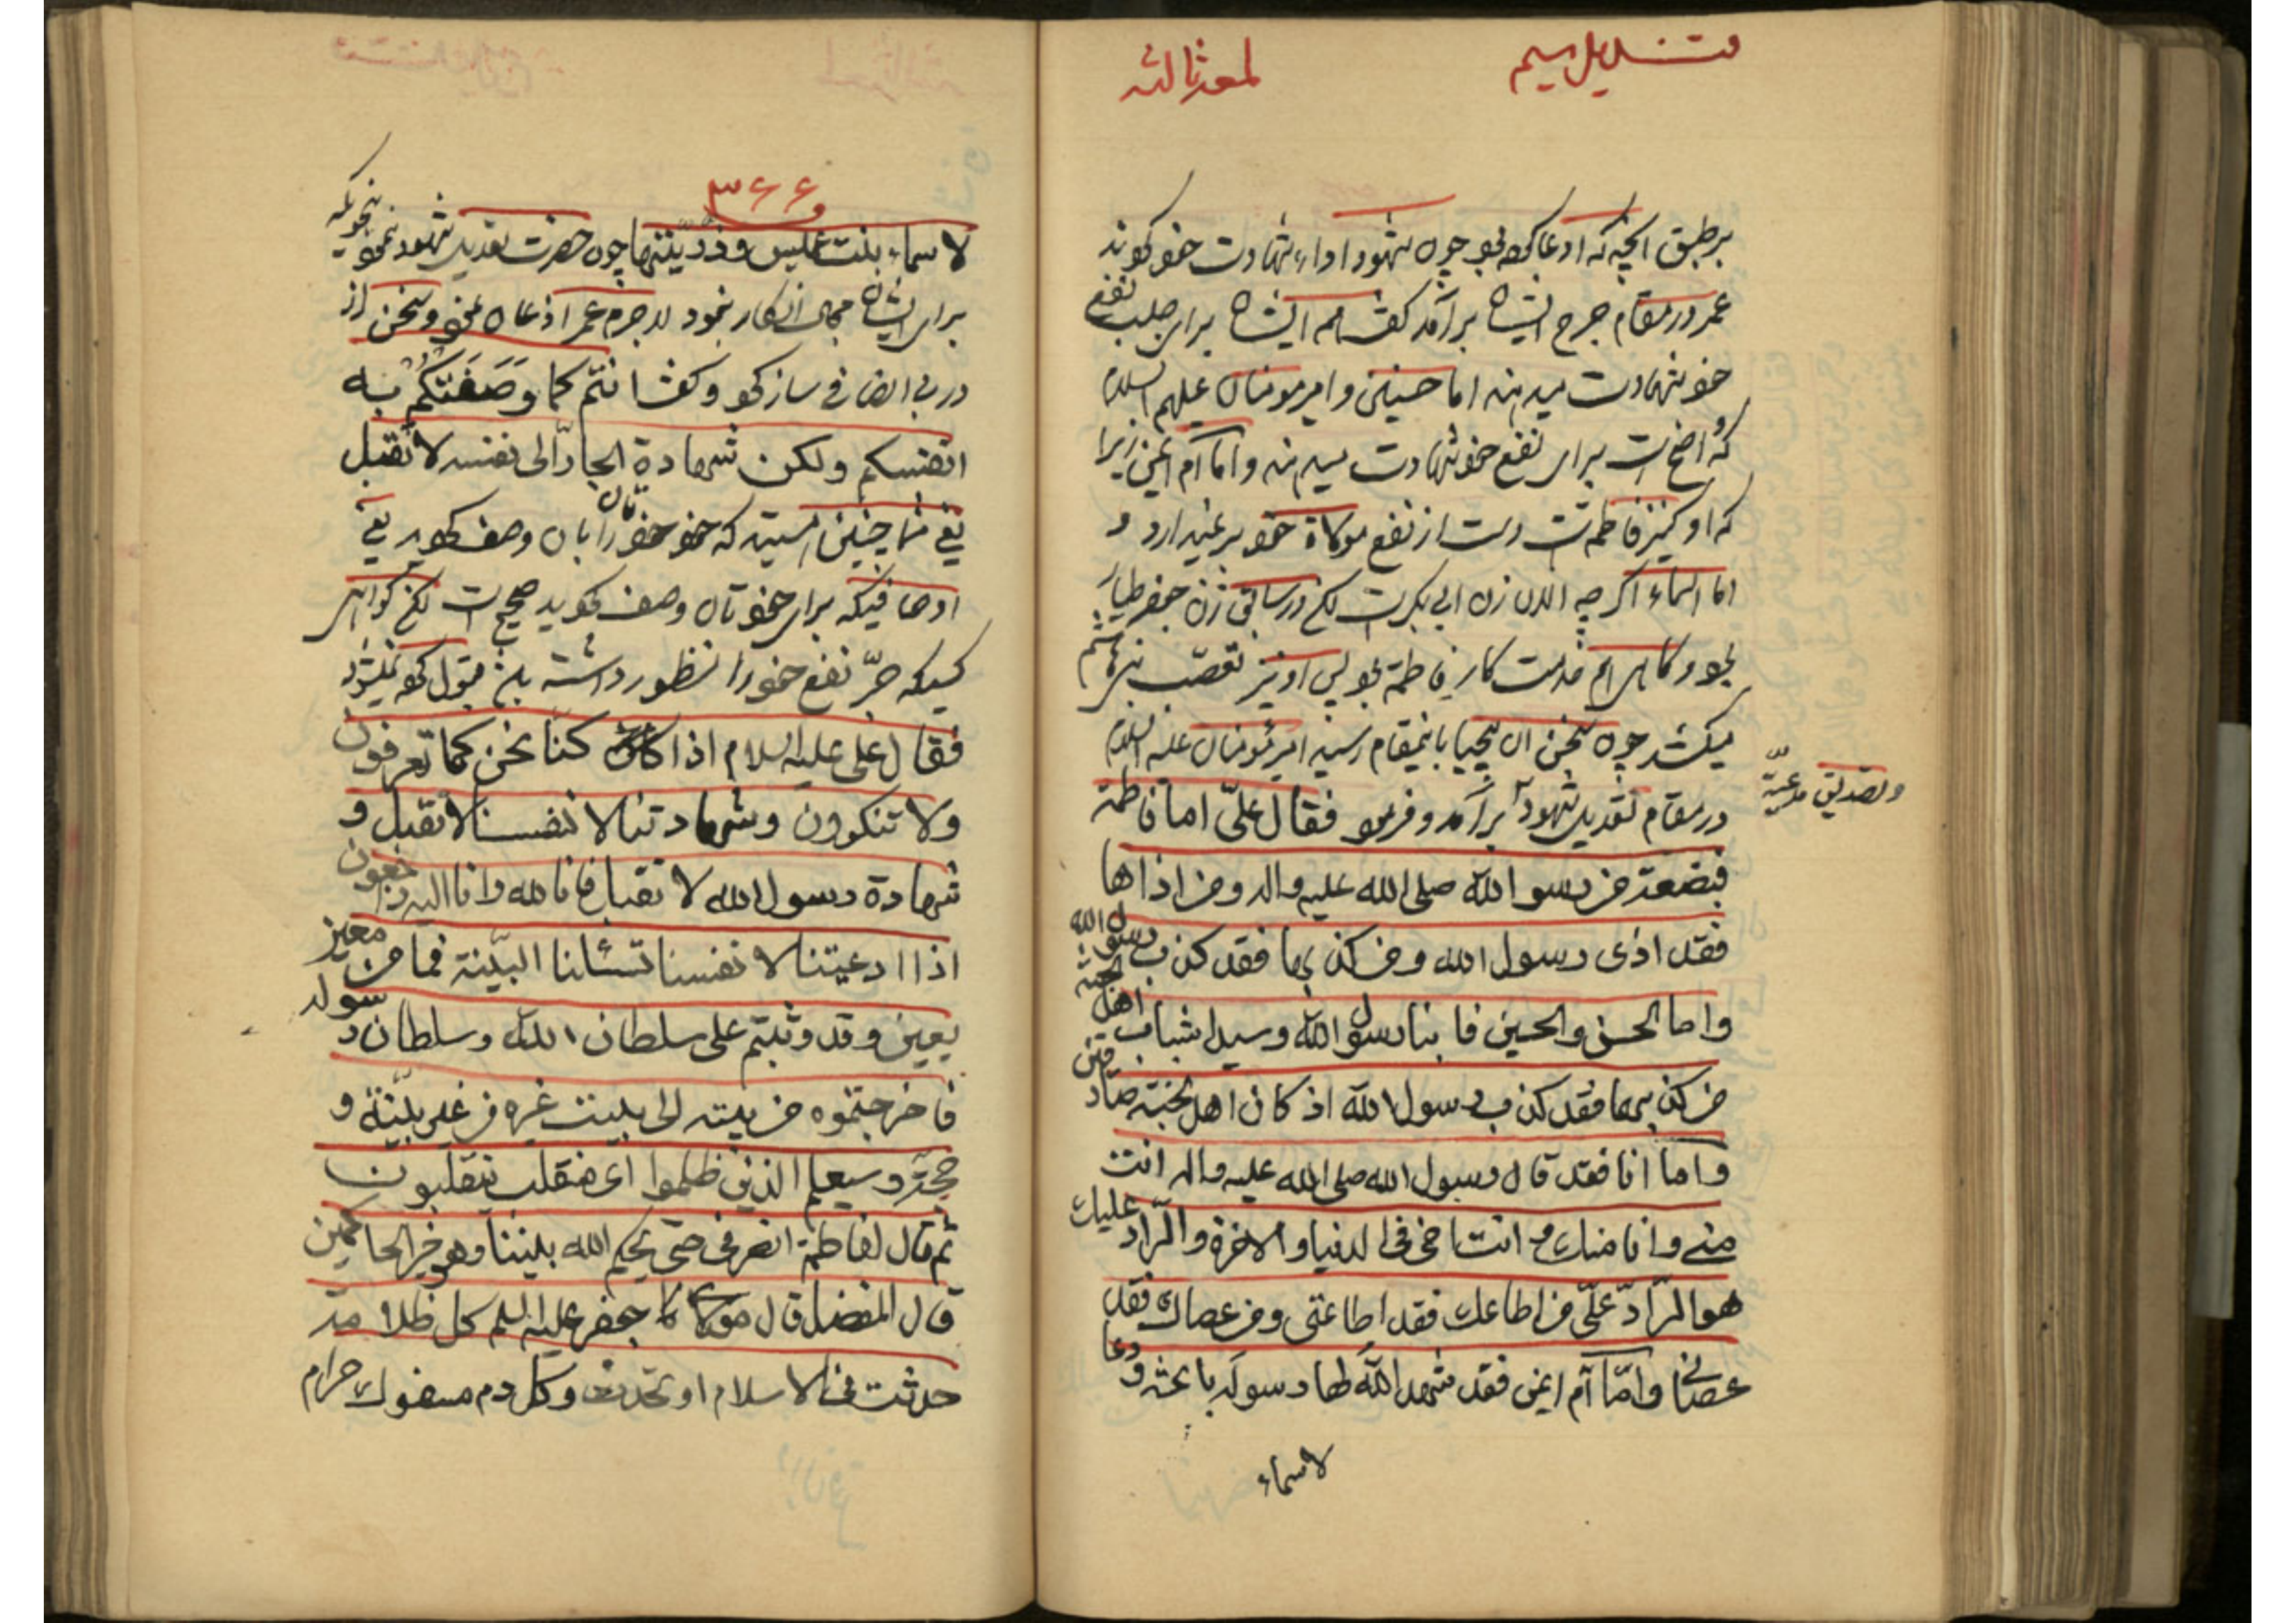 لمعه ثالثه
بر طبق آنچه که ادعا کرده بود چون شهود اداء شهادت خود کردند
عمر در مقام جرح ایشان برآمد گفت همه ایشان برای جلب نفع
خود شهادت میدهند اما حسنین و امیر مومنان علیهم السلام
که واضح است برای نفع خود شهادت میدهند و اما ام ایمن زیرا
که او کنیز فاطمه است دست از نفع مولاة خود بر نمیدارد و
اما اسماء اگر چه الان زن ابی بکر است لکن در سابق زن جعفر طیار
بود و کارهای خدمت کار فاطمه بود پس او نیز تعصب بنی هاشم
میکشد چون سخن آن بیحیا باینمقام رسید امیر مؤمنان علیه السلام
در مقام تعدیل شهود برآمد و فرمود فقال علیّ اما فاطمة
و تصدیق مدعیّه
فبضعة من رسول الله صلی الله علیه واله ومن اذاها
فقد اذی رسول الله ومن کذبها فقد کذب رسول الله
واما الحسن والحسین فابنا رسول الله وسیدا شباب اهل الجنة
من کذبهما فقد کذب رسول الله اذ کان اهل الجنة صادقین
واما انا فقد قال رسول الله صلی الله علیه واله انت
منی وانا منک وانت اخی فی الدنیا والاخرة والرّاد علیک
هو الرّادّ علیّ من اطاعک فقد اطاعنی ومن عصاک فقد
عصانی وامّا ام ایمن فقد شهد الله لها رسوله بالجنة ودعا
لاسماء
۳۶۶
لاسماء بنت عمیس وذرّیّتها چون حضرت تعدیل شهود نمود بنحویکه
برای ایشان مجال انکار نبود لاجرم عمر اذعان نمود و سخن از
در بی انصافی ساز کرد و گفت انتم کما وَصَفتُکُم به
انفسکم ولکن شهادة الجارّ الی نفسه لا تقبل
یعنی شما چنین هستید که خود خودتان را بآن وصف کردید یعنی
اوصافیکه برای خودتان وصف کردید صحیح است لکن گواهی
کسیکه جرّ نفع خود را منظور داشته باشد قبول کرده نمیشود
فقال علی علیه السلام اذا کنّا نحن کما تعرفون
ولا تنکرون وشهادتنا لانفسنا لا تقبل و
شهادة رسول الله لا تقبل فانا لله وانا الیه راجعون
اذا ادعیتنا لانفسنا تسئلنا البیّنة فما من معین
یعین وقد وثبتم علی سلطان الله وسلطان رسوله
فاخرجتموه من بیته الی بیت غیره من غیر بیّنة و
حجّة وسیعلم الذین ظلموا ای منقلب ینقلبون
ثم قال لفاطمة انصرفی حتی یحکم الله بیننا وهو خیر الحاکمین
قال المفضل قال مولای جعفر علیه السلم کل ظلامة
حدثت فی الاسلام او تحدث وکل دم مسفوک حرام